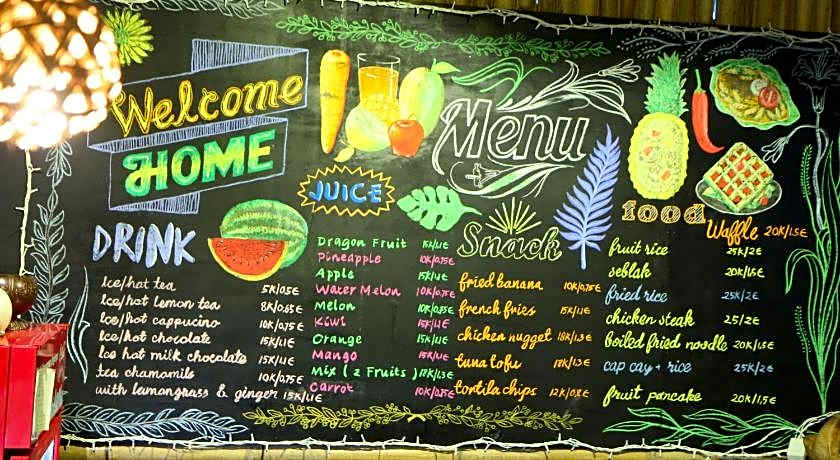 Welcome
HOME
Menu
DRINK
Ice/hot tea 5K/0,5€
Ice/hot lemon tea 8K/0,65€
Ice/hot cappucino 10K/0,75€
Ice/hot chocolate 15K/1,1€
Ice hot milk chocolate 15K/1,1€
tea chamomile 10K/0,75€
with lemongrass & ginger 15K/1,1€
JUICE
Dragon Fruit 15K/1,1€
Pineapple 10K/0,75€
Apple 15K/1,1€
Water Melon 10K/0,75€
Melon 10K/0,75€
Kiwi 15K/1,1€
Orange 15K/1,1€
Mango 15K/1,1€
Mix ( 2 Fruits )
Carrot 10K/0,75€
Snack
fried banana 10K/0,75€
french fries 15K/1,1€
chicken nugget 18K/1,3€
tuna tofu 18K/1,3€
tortila chips 12K/0,8€
food
Waffle 20K/1,5€
fruit rice 25K/2€
seblak 20K/1,5€
fried rice 25K/2€
chicken steak 25/2€
boiled fried noodle 20K/1,5€
cap cay + rice 25K/2€
fruit pancake 20K/1,5€